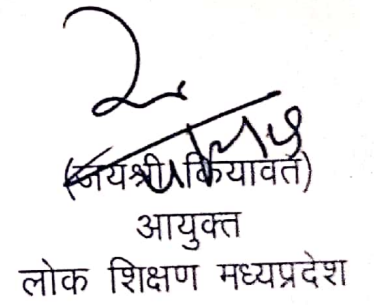 (जयश्री कियावत)
आयुक्त
लोक शिक्षण मध्यप्रदेश